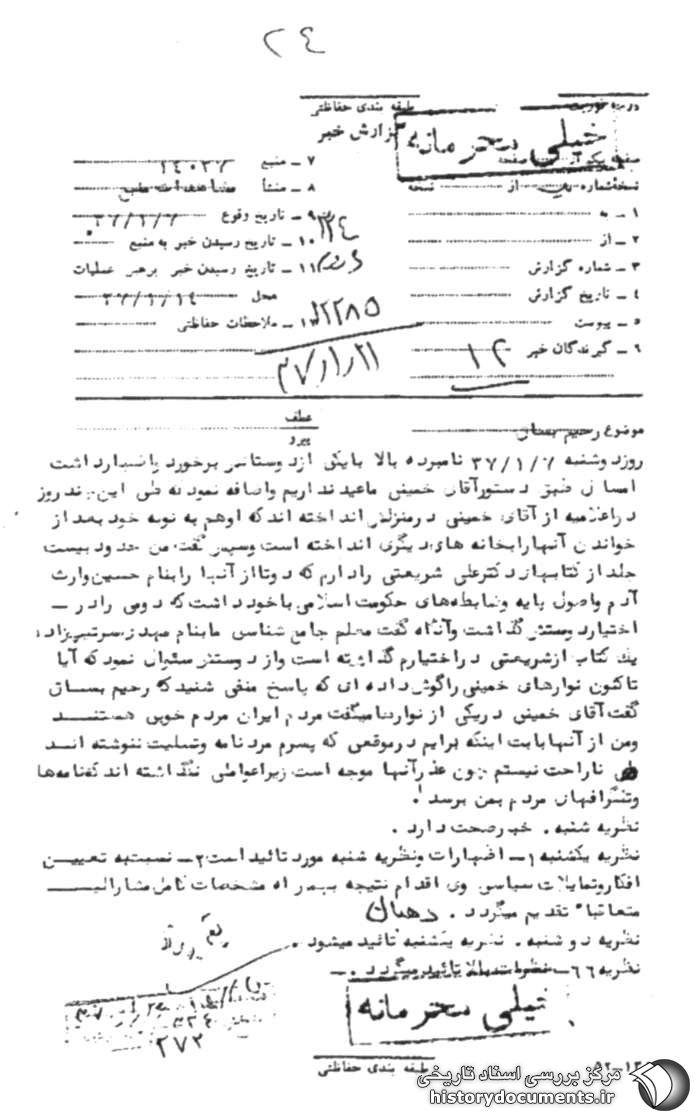 ۲۴
طبقه بندی حفاظتی
خیلی محرمانه
گزارش خبر
صفحه یک از صفحه
نسخه شماره از نسخه
۱ ـ به
۲ ـ از
۳ ـ شماره گزارش
۴ ـ تاریخ گزارش
۵ ـ پیوست
۶ ـ گیرندگان خبر
۱۲
۷ ـ منبع
۸ ـ منشأ مشاهدات منبع
۹ ـ تاریخ وقوع ۳۷/۱/۷
۱۰ ـ تاریخ رسیدن خبر به منبع
۱۱ ـ تاریخ رسیدن خبر برهبر عملیات
محل ۳۷/۱/۱۴
ملاحظات حفاظتی
۳۷/۱/۲۱
موضوع رحیم بساق
عطف
پیرو
روز دوشنبه ۳۷/۱/۷ نامبرده بالا با یکی از دوستانش برخورد و اظهار داشت
امسال طبق دستور آقای خمینی ما عید نداریم و اضافه نمود که طی این چند روز
دو اعلامیه از آقای خمینی در منزلش انداخته اند که او هم به نوبه خود بعد از
خواندن آنها را بخانه های دیگری انداخته است و سپس گفت من حدود بیست
جلد از کتابهای دکتر علی شریعتی را دارم که دو تا از آنها را بنام حسین وارث
آدم و اصول پایه و ضابطه های حکومت اسلامی با خود داشت که دومی را در ـ
اختیار دوستش گذاشت و آنگاه گفت معلم جامعه شناسی ما بنام
یک کتاب از شریعتی در اختیارم گذاشته است و از دوستش سئوال نمود که آیا
تاکنون نوارهای خمینی را گوش داده ای که پاسخ منفی شنید که رحیم بساق
گفت آقای خمینی در یکی از نوارها میگفت مردم ایران مردم خوبی هستند
و من از آنها بابت اینکه برایم در موقعی که پسرم مرد نامه و تسلیت ننوشته اند
ناراحت نیستم چون عذر آنها موجه است زیرا عواملی نگذاشته اند که نامه ها
و تلگرافهای مردم بمن برسد.
نظریه شنبه . خبر صحت دارد .
نظریه یکشنبه ۱ـ اظهارات و نظریه شنبه مورد تائید است ۲ـ نسبت به تعیین
افکار و تمایلات سیاسی وی اقدام نتیجه بهمراه مشخصات کامل مشارالیه
متعاقبا" تقدیم میگردد . رهبان
نظریه دوشنبه . نظریه یکشنبه تائید میشود .
نظریه ۶۶ـ نظرات بالا تائید میگردد .ـ
خیلی محرمانه
۲۷۲
طبقه بندی حفاظتی
مرکز بررسی اسناد تاریخی
historydocuments.ir